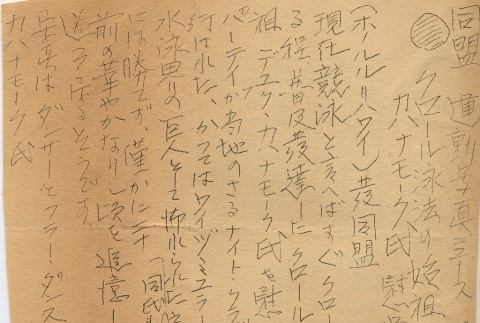 同盟 通割写真ニュース
クロール泳法の始祖
カハナモーク氏 慰
(ホノルル(ハワイ)発同盟
現在競泳と言へばすぐクロー
る程、普及発達した クロール
祖 デューク・カハナモーク氏を慰
パーティが当地のさるナイト・クラブ
行はれた、かつてはワイヅミュラー
水泳界の巨人として怖れられた
には勝てず、僅かに二十
前の華やかなりし頃を追憶し
送って居るそうです。
写真はダンサーとフラー・ダンス
カハナモーク氏
「同氏